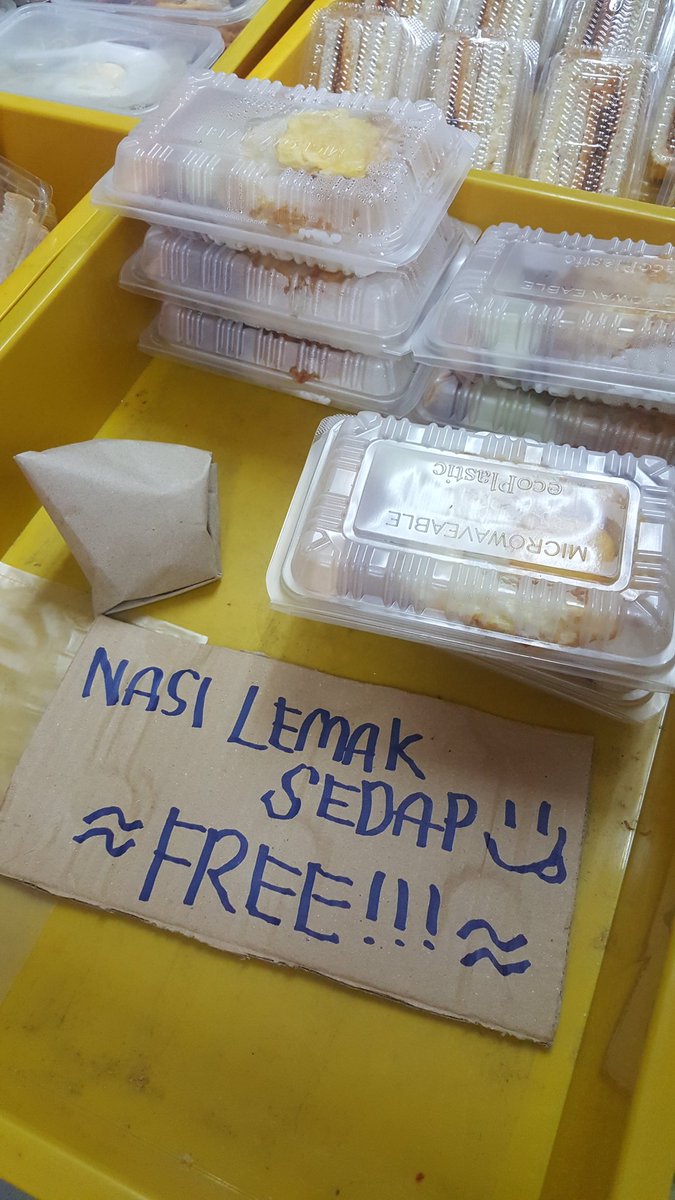 NASI LEMAK
SEDAP
FREE!!!
ecoPlastic
MICROWAVEABLE
ecoPlastic